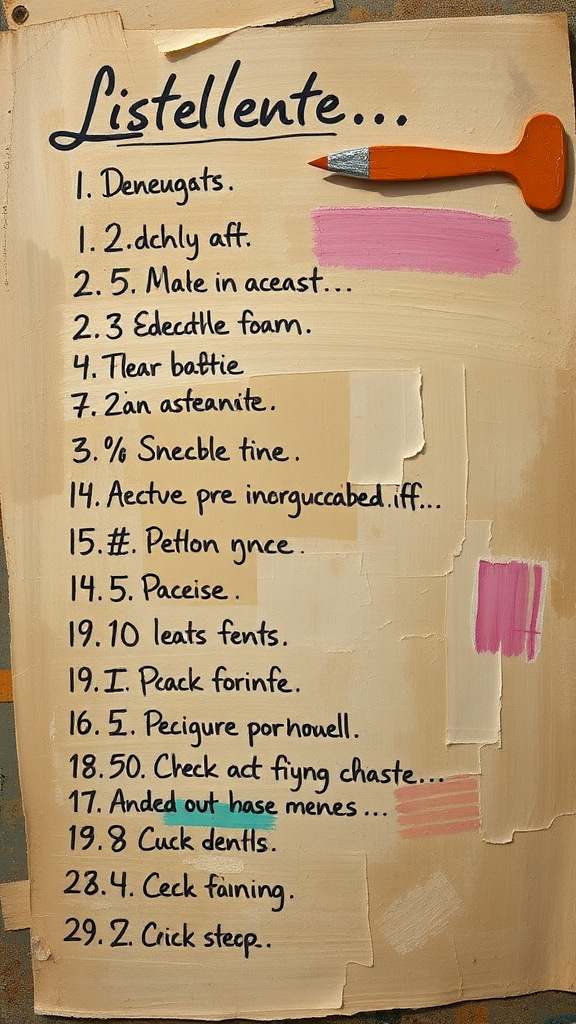 Listellente...
1. Deneugats.
1. 2.dchly aft.
2. 5. Mate in aceast...
2. 3 Edecdtle foam.
4. Tlear battie
7. 2an asteanite.
3. % Snecble tine.
14. Aectve pre inorguccabed.iff...
15. #. Petlon ynce.
14. 5. Paceise.
19. 10 leats fents.
19. I. Pcack forinfe.
16. 5. Pecigure porhouell.
18. 50. Check act fiyng chaste...
17. Anded out hase menes ...
19. 8 Cuck dentls.
23. 4. Ceck faining.
29. 2. Crick stecp..